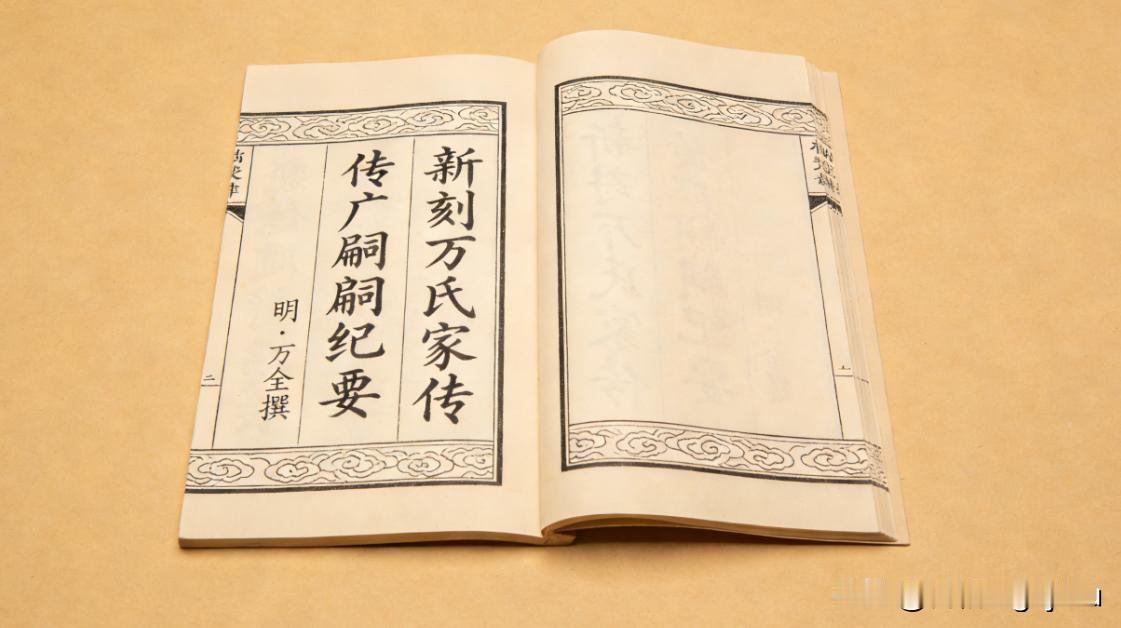 新刻万氏家传
传广嗣嗣纪要
明·万全撰
二